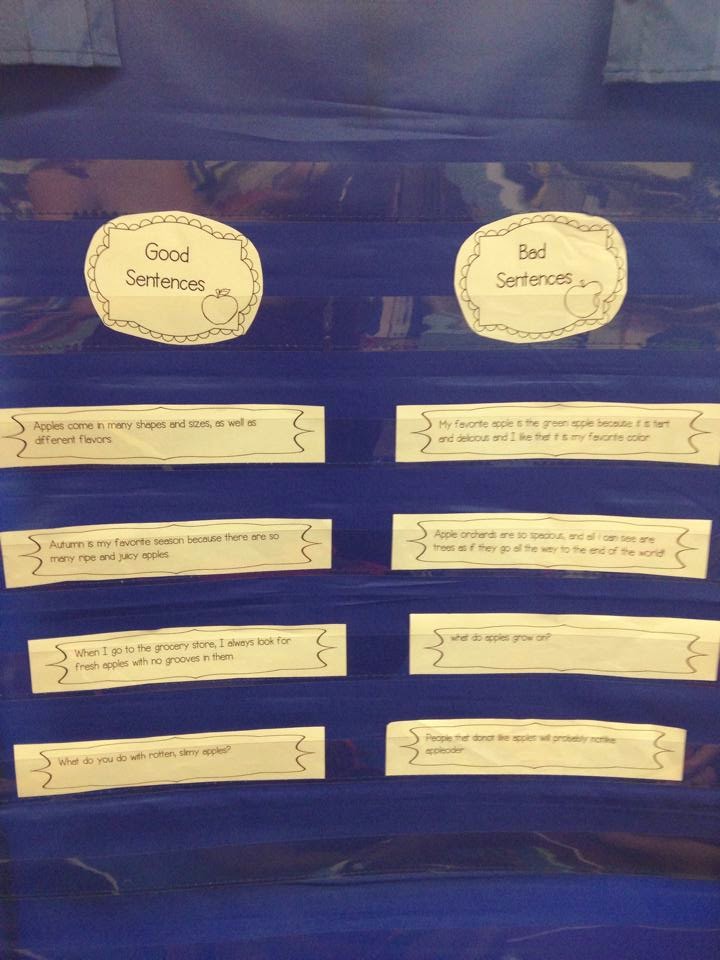 Good
Sentences
Bad
Sentences
Apples come in many shapes and sizes, as well as
different flavors.
Autumn is my favorite season because there are so
many ripe and juicy apples.
When I go to the grocery store, I always look for
fresh apples with no grooves in them.
What do you do with rotten, slimy apples?
My favorite apple is the green apple because it is tart
and delicious and I like that it is my favorite color
Apple orchards are so spacious, and all i can see are
trees as if they go all the way to the end of the world!
what do apples grow on?
People that donot like apples will probably notlike
appleoder